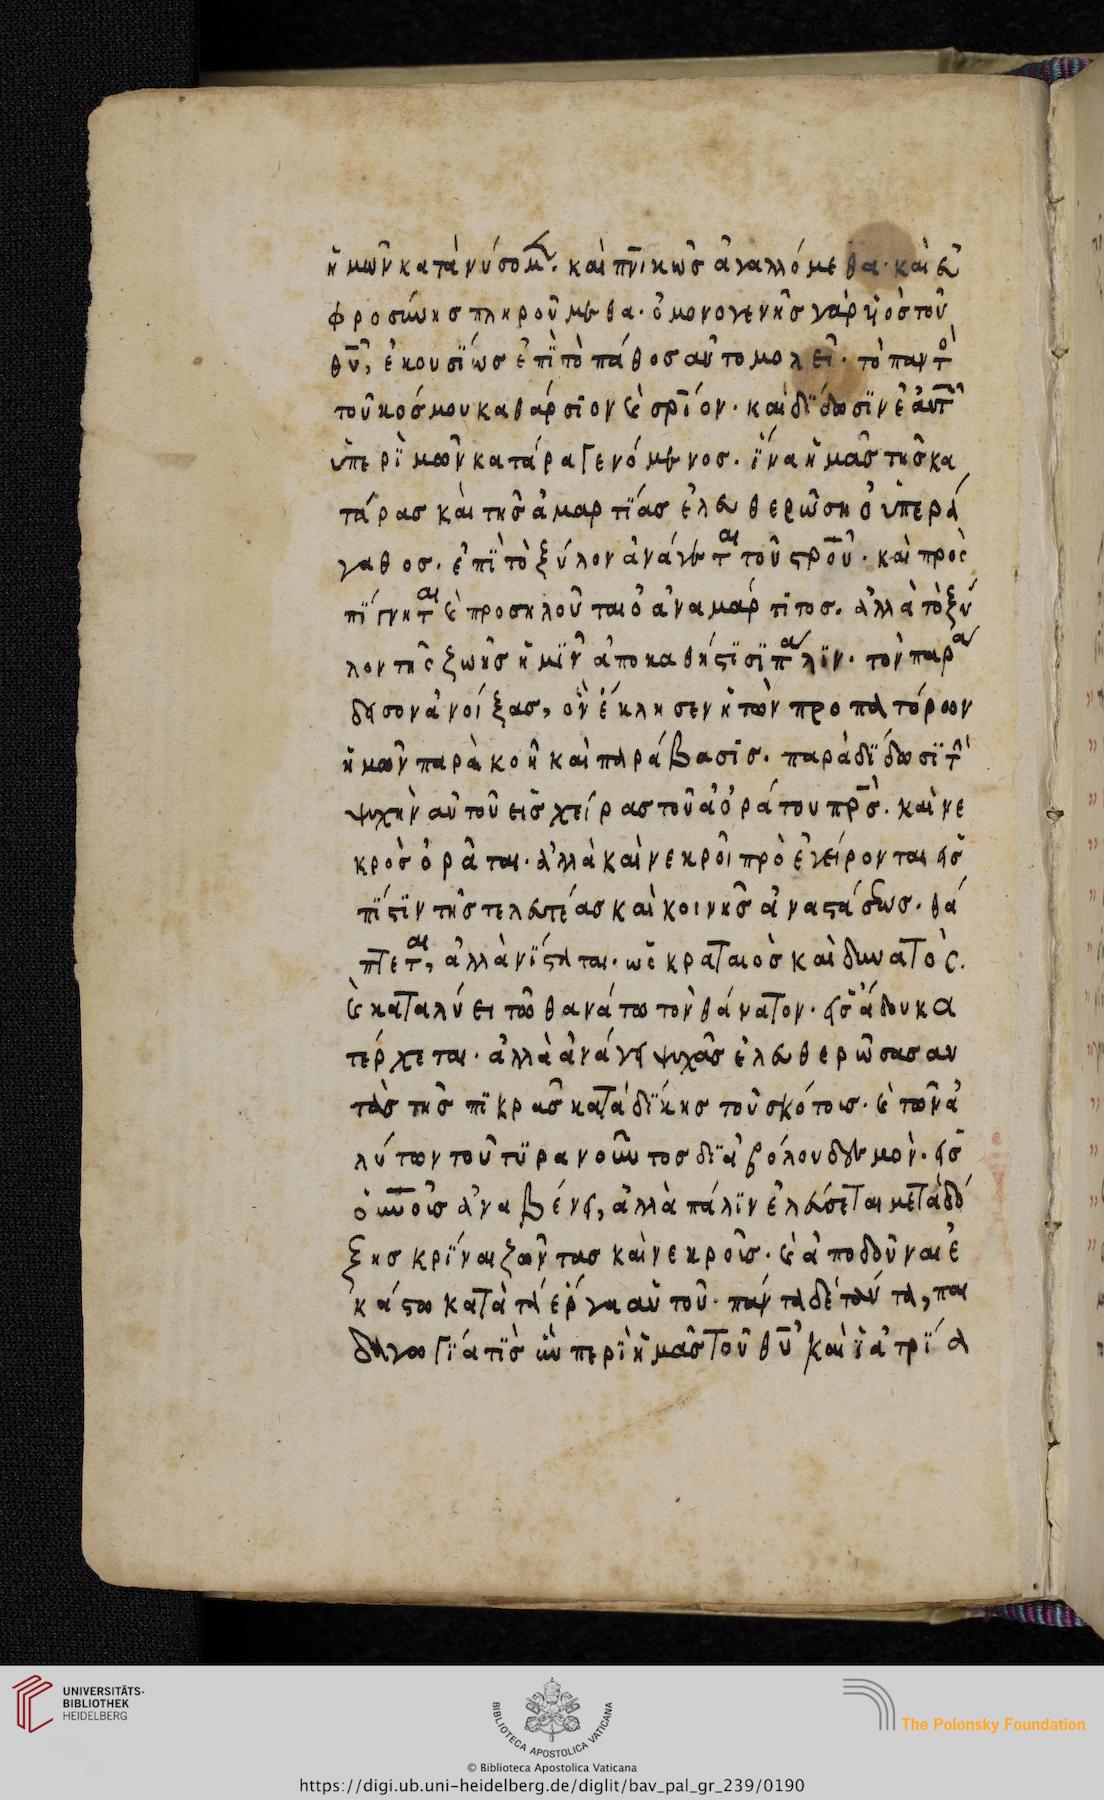 ἡμῶν κατὰ νύσομ. καὶ πνικῶς ἀγαλλόμεθα· καὶ εὐ
φροσύνης πληρούμεθα· ὁ μονογενὴς γὰρ ὑϊὸς τοῦ
θῦ, ἑκουσίως ἐπὶ τὸ πάθος αὐτομολεῖ· τὸ παντὸ
τοῦ κόσμου καθάρσιον καὶ σρίον· καὶ δίδωσιν ἑαυτ
ὑπερἱμῶν κατάρα γενόμενος. ἵνα ἡμᾶς τῆς κα
τάρας καὶ τῆς ἁμαρτίας ἐλευθερώση ὁ ὑπερά
γαθος. ἐπὶ τὸ ξύλον ἀνάγεται τοῦ σροῦ· καὶ προσ
πίγνηται καὶ προσηλοῦται ὁ ἀναμάρτιτος. ἀλλὰ τὸ ξύ
λον τῆς ζωῆς ἡμῖν ἀποκαθήστισι πάλιν· τὸν παρά
δησον ἀνοίξας, ὃν ἔκλησεν ἡ τῶν προπατόρων
ἡμῶν παρὰκοὴ καὶ παράβασις. παραδίδωσι τὴν
ψυχὴν αὐτοῦ εἰς χείρας τοῦ ἀοράτου πρς. καὶ νε
κρὸς ὁρᾶται· ἀλλὰ καὶ νεκροὶ προεγείρονται εἰς
πίστιν τῆς τελευτέας καὶ κοινῆς ἀναστάσεως. θά
πτεται, ἀλλ' ἀνίσταται· ὡς κραταιὸς καὶ δυνατός.
καὶ καταλύει τῶ θανάτω τὸν θάνατον· εἰς ἅδου κα
τέρχεται· ἀλλὰ ἀνάγει ψυχὰς ἐλευθερώσας αυ
τὰς τῆς πικρᾶς καταδίκης τοῦ σκότους· καὶ τῶν ἀ
λύτων τοῦ τυρανοῦντος διαβόλου δεσμὸν· εἰς
οὐνοὺς ἀναβένει, ἀλλὰ πάλιν ἐλεύσεται μετὰ δό
ξης κρῖναι ζῶντας καὶ νεκρούς. καὶ ἀποδοῦναι ἑ
κάστω κατὰ τὰ ἔργα αὐτοῦ· πάντα δὲ ταῦτα, παι
δαγωγία τὶς ἦν περὶ ἡμᾶς τοῦ θῦ καὶ ἰατρία
UNIVERSITÄTS-
BIBLIOTHEK
HEIDELBERG
BIBLIOTECA APOSTOLICA VATICANA
The Polonsky Foundation
© Biblioteca Apostolica Vaticana
https://digi.ub.uni-heidelberg.de/diglit/bav_pal_gr_239/0190